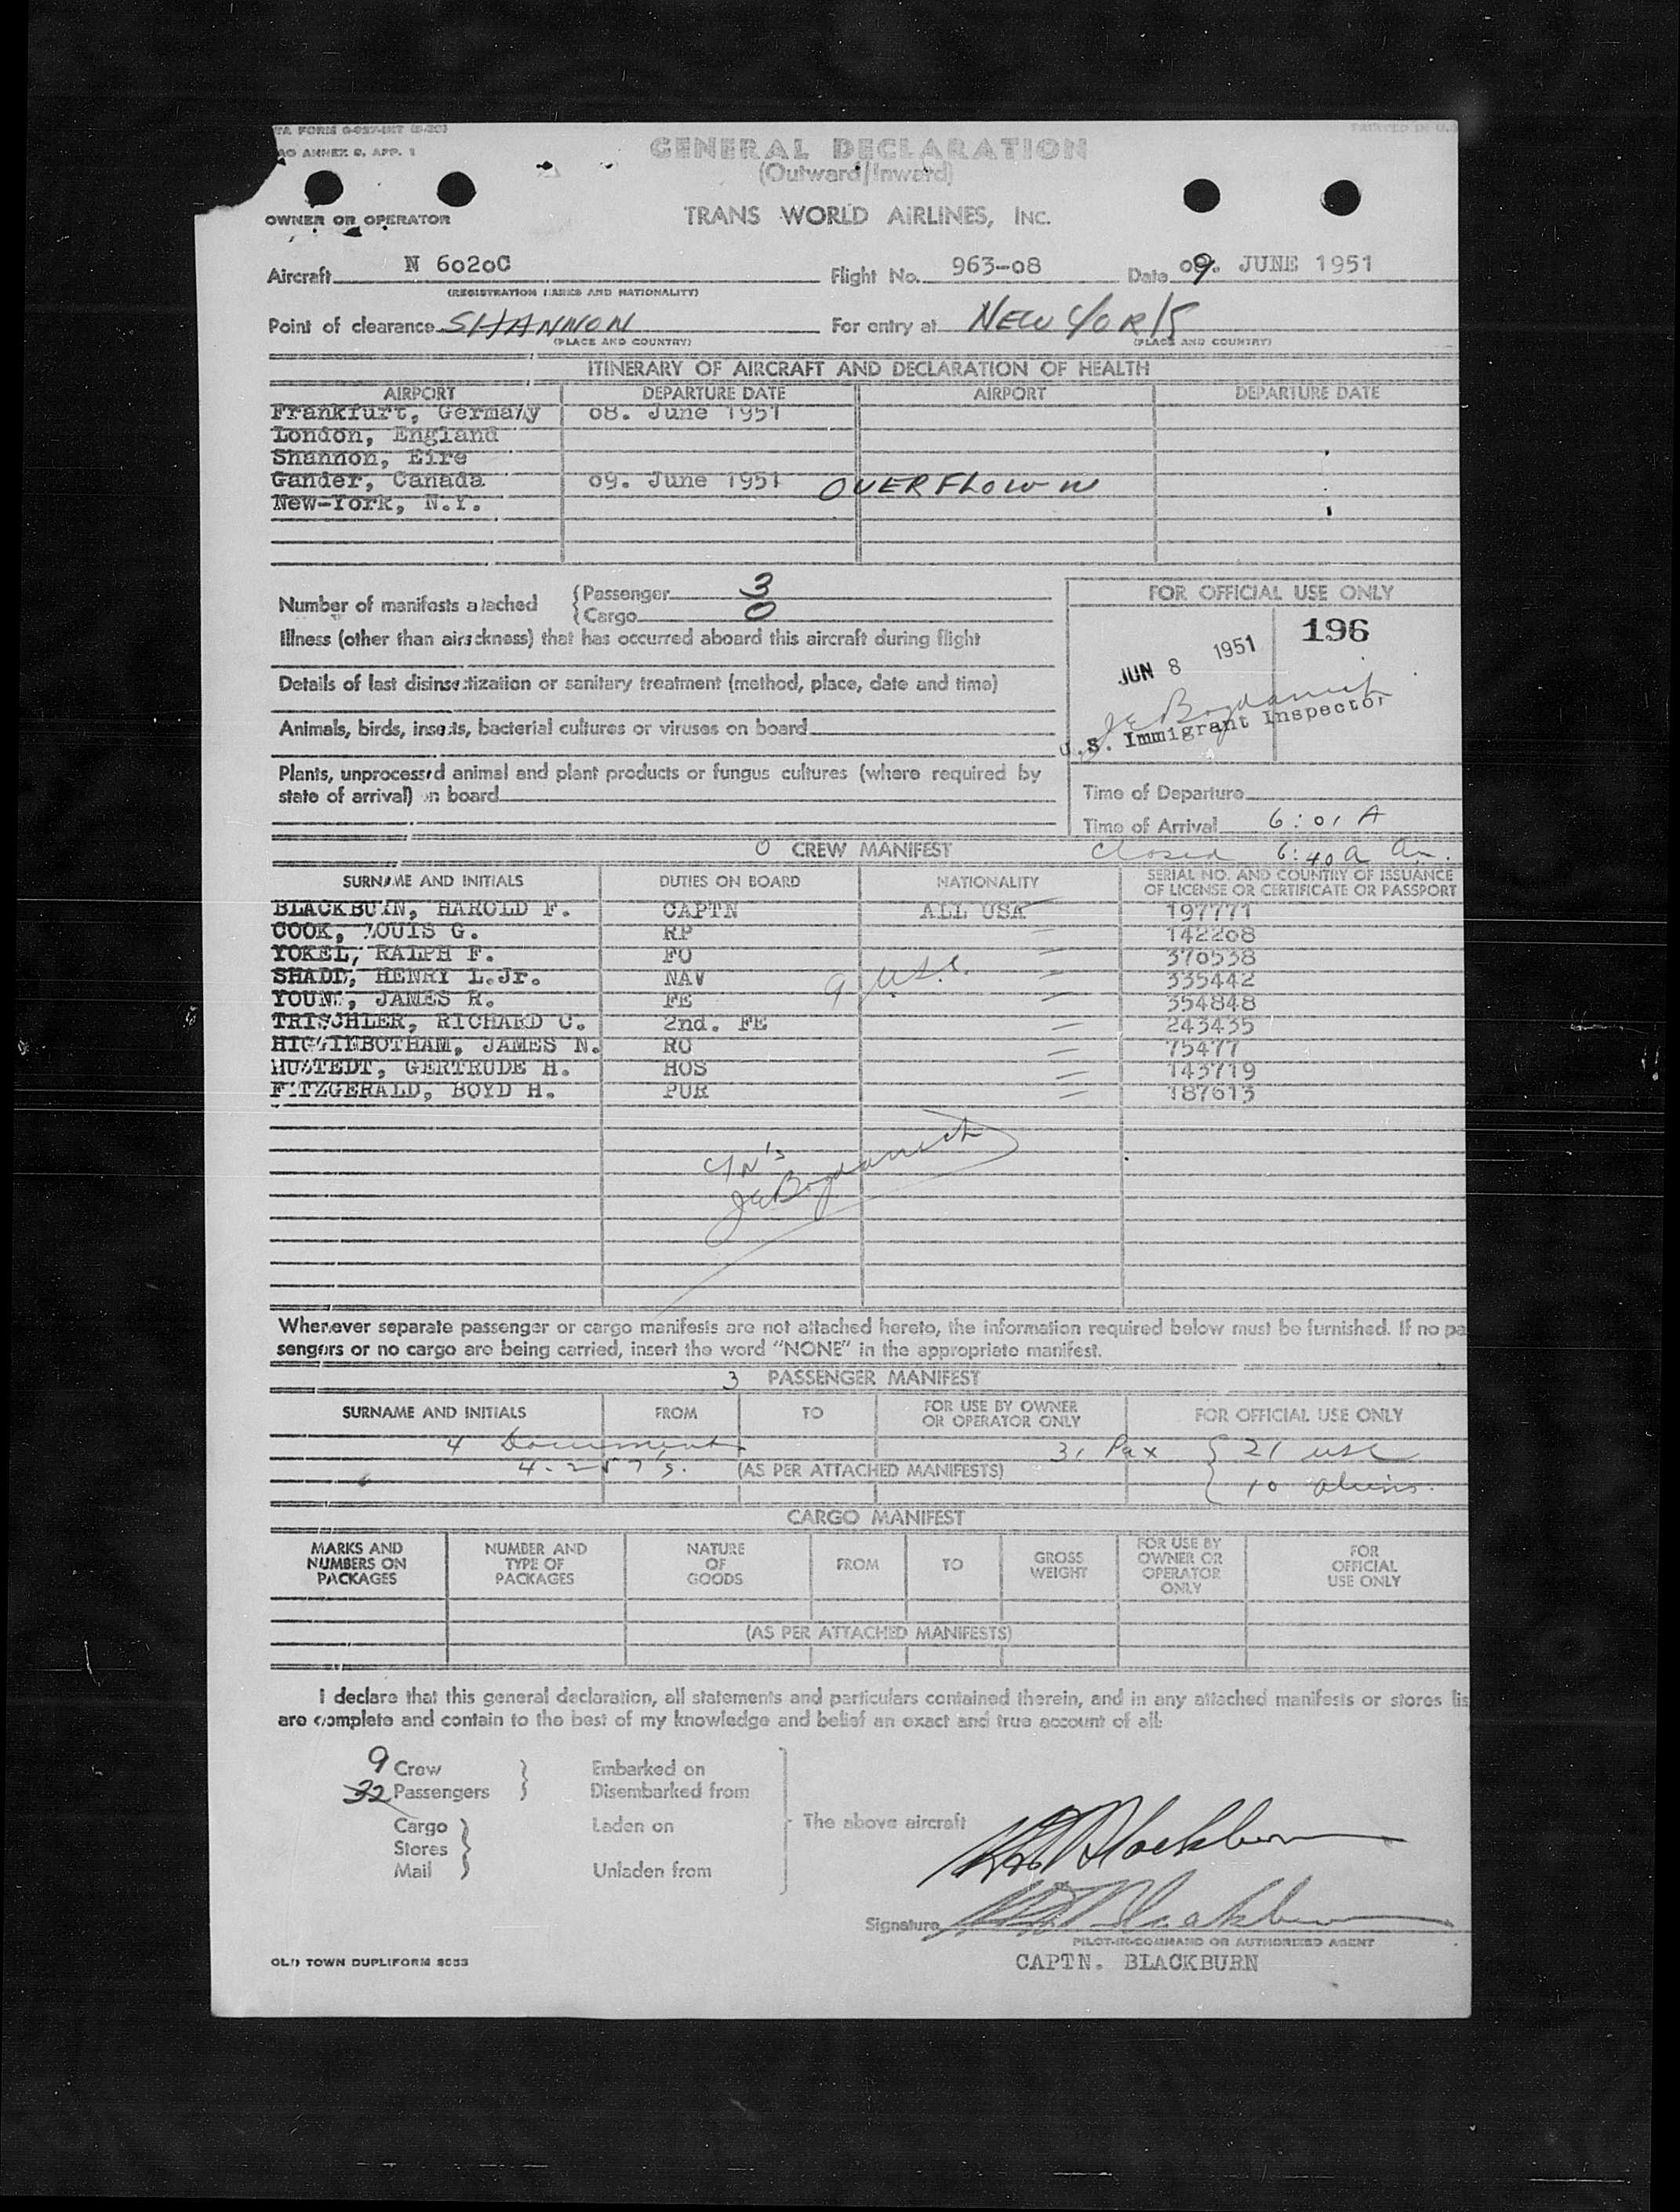 TA FORM G-037-INT (5-50)
AO ANNEX 9, APP. 1
PRINTED IN U.S
GENERAL DECLARATION
(Outward/Inward)
OWNER OR OPERATOR TRANS WORLD AIRLINES, INC.
Aircraft N 6020C Flight No. 963-08 Date 09. JUNE 1951
(REGISTRATION MARKS AND NATIONALITY)
Point of clearance SHANNON For entry at NEW YORK
(PLACE AND COUNTRY) (PLACE AND COUNTRY)
ITINERARY OF AIRCRAFT AND DECLARATION OF HEALTH
AIRPORT DEPARTURE DATE AIRPORT DEPARTURE DATE
Frankfurt, Germany 08. June 1951
London, England
Shannon, Eire
Gander, Canada 09. June 1951 OVERFLOWN
New-York, N.Y.
Number of manifests attached {Passenger 3
{Cargo 0
Illness (other than airsickness) that has occurred aboard this aircraft during flight
Details of last disinsectization or sanitary treatment (method, place, date and time)
Animals, birds, insects, bacterial cultures or viruses on board
Plants, unprocessed animal and plant products or fungus cultures (where required by
state of arrival) on board
FOR OFFICIAL USE ONLY
196
JUN 8 1951
J E Bogdanich
U.S. Immigrant Inspector
Time of Departure
Time of Arrival 6:01 A
Closed 6:40 a am.
0 CREW MANIFEST
SURNAME AND INITIALS DUTIES ON BOARD NATIONALITY SERIAL NO. AND COUNTRY OF ISSUANCE
OF LICENSE OR CERTIFICATE OR PASSPORT
BLACKBURN, HAROLD F. CAPTN ALL USA 197771
COOK, LOUIS G. RP 142208
YOKEL, RALPH F. FO 370538
SHADD, HENRY L.Jr. NAV 335442
9 USC
YOUNG, JAMES R. FE 354848
TRISCHLER, RICHARD C. 2nd. FE 243435
HIGGINBOTHAM, JAMES N. RO 75477
HUSTEDT, GERTRUDE H. HOS 143719
FITZGERALD, BOYD H. PUR 187613
J E Bogdanich
Whenever separate passenger or cargo manifests are not attached hereto, the information required below must be furnished. If no pa
sengers or no cargo are being carried, insert the word "NONE" in the appropriate manifest.
3 PASSENGER MANIFEST
SURNAME AND INITIALS FROM TO FOR USE BY OWNER
OR OPERATOR ONLY FOR OFFICIAL USE ONLY
4 Documents 31 Pax { 21 USC
(AS PER ATTACHED MANIFESTS) 10 aliens.
CARGO MANIFEST
MARKS AND
NUMBERS ON
PACKAGES
NUMBER AND
TYPE OF
PACKAGES
NATURE
OF
GOODS
FROM
TO
GROSS
WEIGHT
FOR USE BY
OWNER OR
OPERATOR
ONLY
FOR
OFFICIAL
USE ONLY
(AS PER ATTACHED MANIFESTS)
I declare that this general declaration, all statements and particulars contained therein, and in any attached manifests or stores lis
are complete and contain to the best of my knowledge and belief an exact and true account of all:
9 Crew } Embarked on
32 Passengers } Disembarked from
Cargo } Laden on The above aircraft
Stores
Mail } Unladen from
H F Blackburn
Signature H F Blackburn
PILOT-IN-COMMAND OR AUTHORIZED AGENT
OLD TOWN DUPLIFORM 8053 CAPTN. BLACKBURN